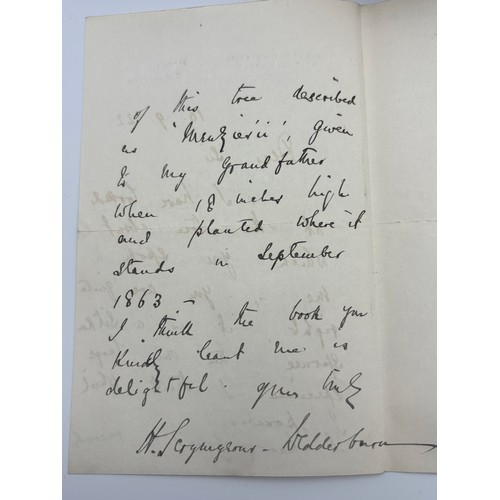 of this tree described
as 'Menzies'ii', given
to my Grandfather
when 18 inches high
and planted where it
stands in September
1863 –
I think the book you
Kindly leant me is
delightful. yours truly
H. Scrymgeour-Wedderburn